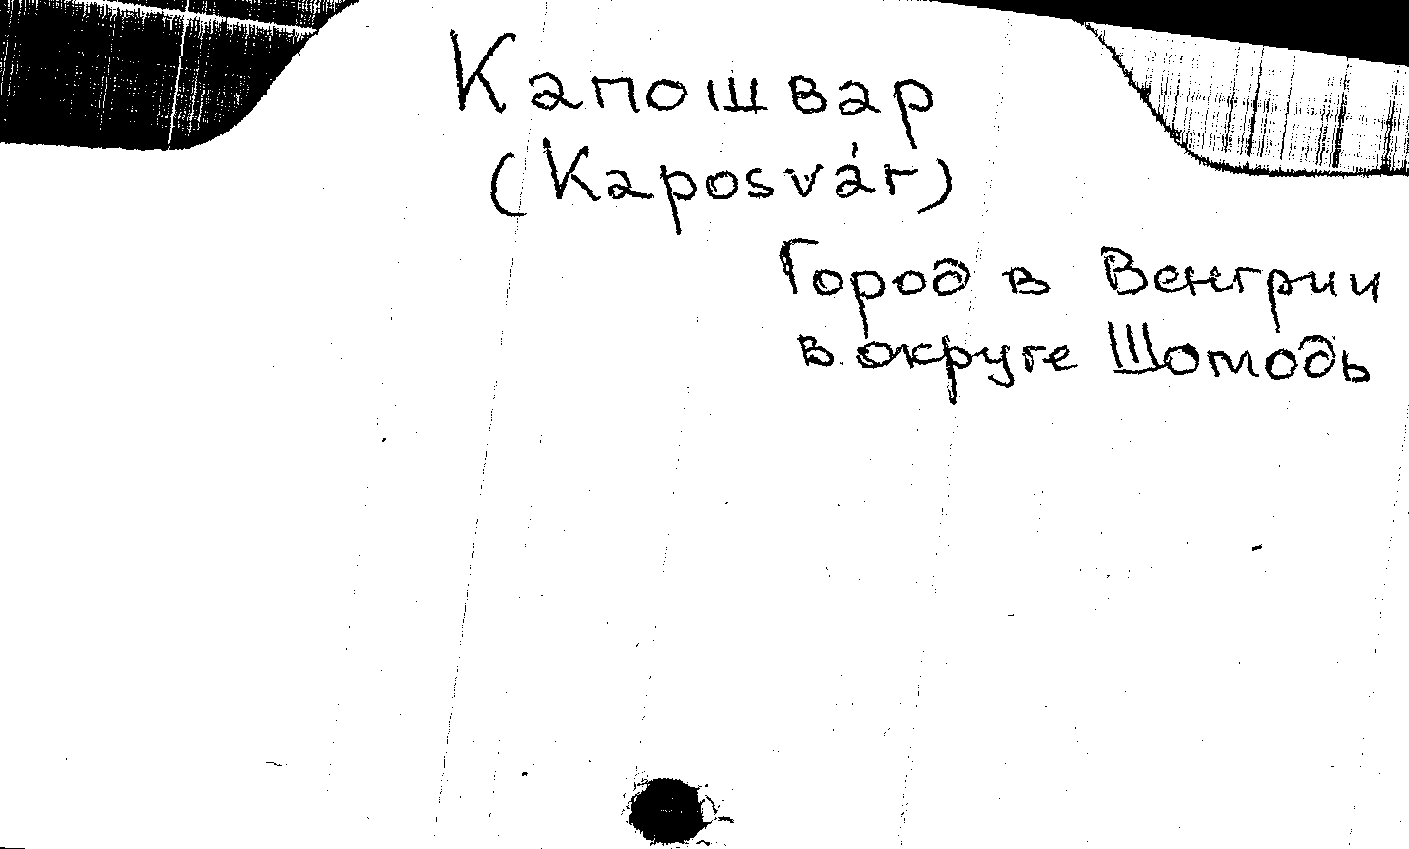 Капошвар
(Kaposvár)
Город в Венгрии
в округе Шомодь